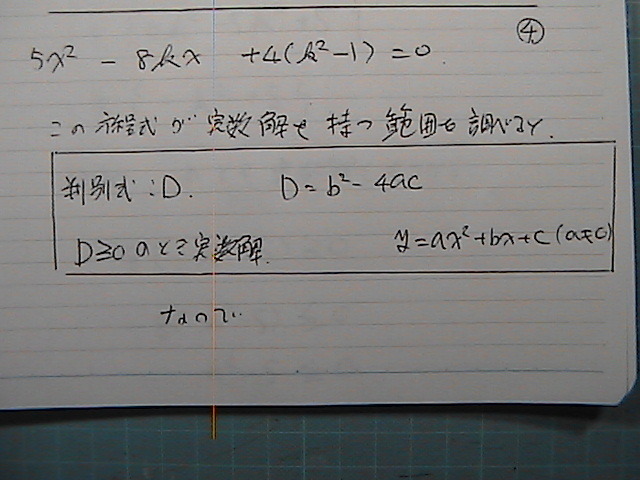 ④
5x² - 8kx +4(k²-1) = 0.
この方程式が実数解を持つ範囲を調べると、
判別式:D. D = b² - 4ac
D≥0のとき実数解. y = ax²+bx+c (a≠0)
なので